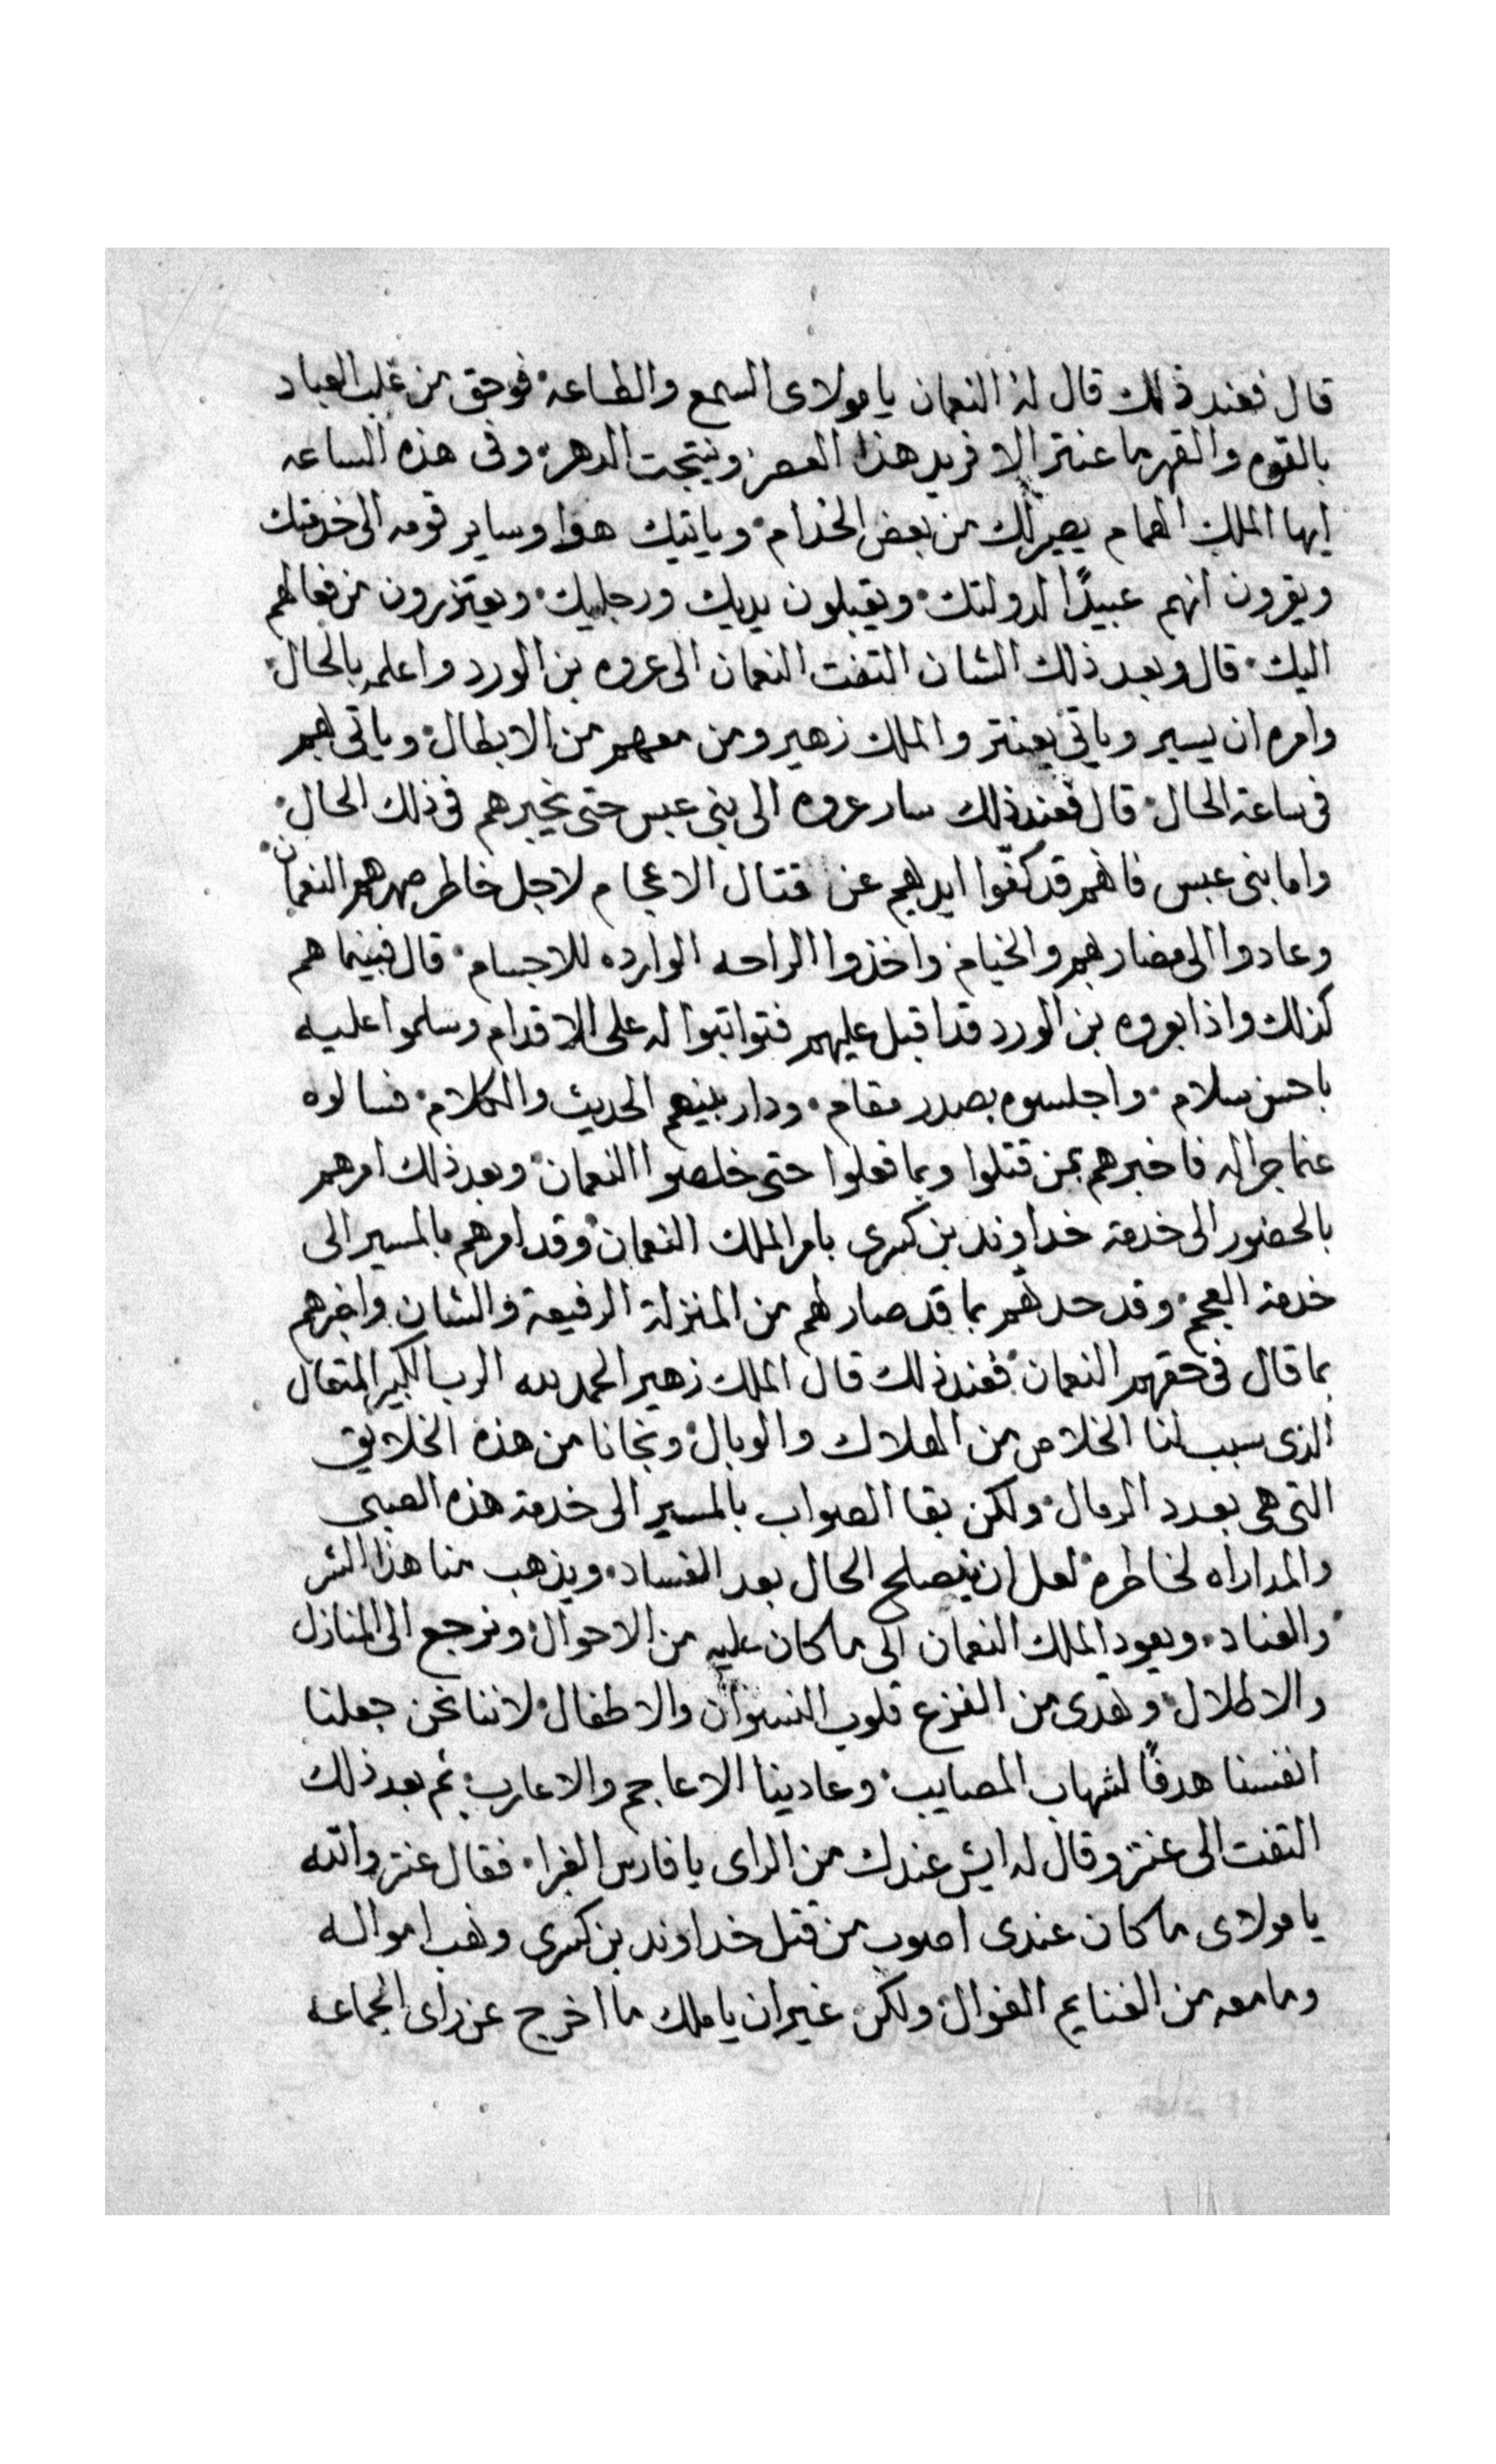 قال فعند ذلك قال له النعمان يا مولاى السمع والطاعه فوحق من غلب العباد
بالقوه والقهر ما عنتر الا فريد هذا العصر ونتيجت الدهر وفى هذه الساعه
ايها الملك الهمام يصير لك من بعض الخدام وياتيك هوا وساير قومه الى خدمتك
ويقرون انهم عبيدًا لدولتك ويقبلون يديك ورجليك ويعتذرون من فعالهم
اليك قال وبعد ذلك الشان التفت النعمان الى عروه بن الورد واعلمه بالحال
وامره ان يسير وياتي بعنتر والملك زهير ومن معهم من الابطال وياتى بهم
فى ساعة الحال قال فعند ذلك سار عروه الى بني عبس حتى يخبرهم فى ذلك الحال
واما بنى عبس فانهم قد كفّوا ايديهم عن قتال الاعجام لاجل خاطر صهرهم النعمان
وعادوا الى مضاربهم والخيام واخذوا الراحه الوارده للاجسام قال فبينما هم
كذلك واذا بعروه بن الورد قد اقبل عليهم فتواتبوا له على الاقدام وسلموا عليه
باحسن سلام واجلسوه بصدر مقام ودار بينهم الحديث والكلام فسالوه
عنما جرا له فاخبرهم بمن قتلوا وبما فعلوا حتى خلصوا النعمان وبعد ذلك امرهم
بالحضور الى خدمة خداوند بن كسرى بامر الملك النعمان وقد امرهم بالمسير الى
خدمة العجم وقد حدثهم بما قد صار لهم من المنزلة الرفيعة والشان واخبرهم
بما قال فى حقهم النعمان فعند ذلك قال الملك زهير الحمد لله الرب الكبير المتعال
الذى سبب لنا الخلاص من الهلاك والوبال ونجانا من هذه الخلايق
التى هى بعدد الرمال ولكن بقا الصواب بالمسير الى خدمة هذه الصبى
والمداراه لخاطره لعل ان ينصلح الحال بعد الفساد ويذهب منا هذا الشر
والعناد ويعود الملك النعمان الى ما كان عليه من الاحوال ونرجع الى المنازل
والاطلال وتهدى من الفزع قلوب النسوان والاطفال لاننا نحن جعلنا
انفسنا هدفًا لشهاب المصايب وعادينا الاعاجم والاعارب ثم بعد ذلك
التفت الى عنتر وقال له ايش عندك من الراى يا فارس الغبرا فقال عنتر والله
يا مولاى ما كان عندى اصوب من قتل خداوند بن كسرى ونهب امواله
وما معه من الغنايم الغوال ولكن غير ان يا ملك ما اخرج عن راى الجماعه